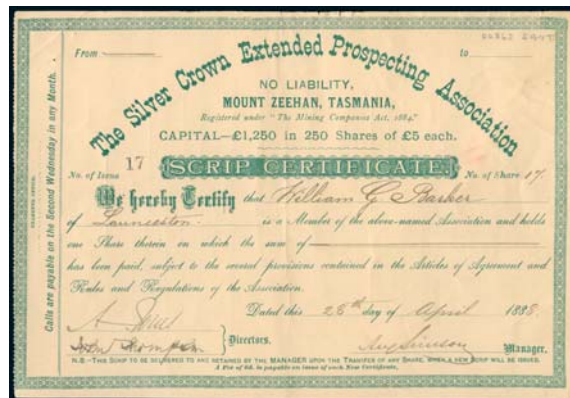 From
to
The Silver Crown Extended Prospecting Association
NO LIABILITY,
MOUNT ZEEHAN, TASMANIA,
Registered under "The Mining Companies Act, 1884."
CAPITAL—£1,250 in 250 Shares of £5 each.
No. of Issue 17
SCRIP CERTIFICATE.
No. of Share 17.
We hereby Certify that William G Barker
of Launceston is a Member of the above-named Association and holds
one Share therein on which the sum of
has been paid, subject to the several provisions contained in the Articles of Agreement and
Rules and Regulations of the Association.
Dated this 26th day of April 1888.
Directors.
Manager.
N.B.—THIS SCRIP TO BE DELIVERED TO AND RETAINED BY THE MANAGER UPON THE TRANSFER OF ANY SHARE, WHEN A NEW SCRIP WILL BE ISSUED.
A Fee of 6d. is payable on issue of each New Certificate.
Calls are payable on the Second Wednesday in any Month.